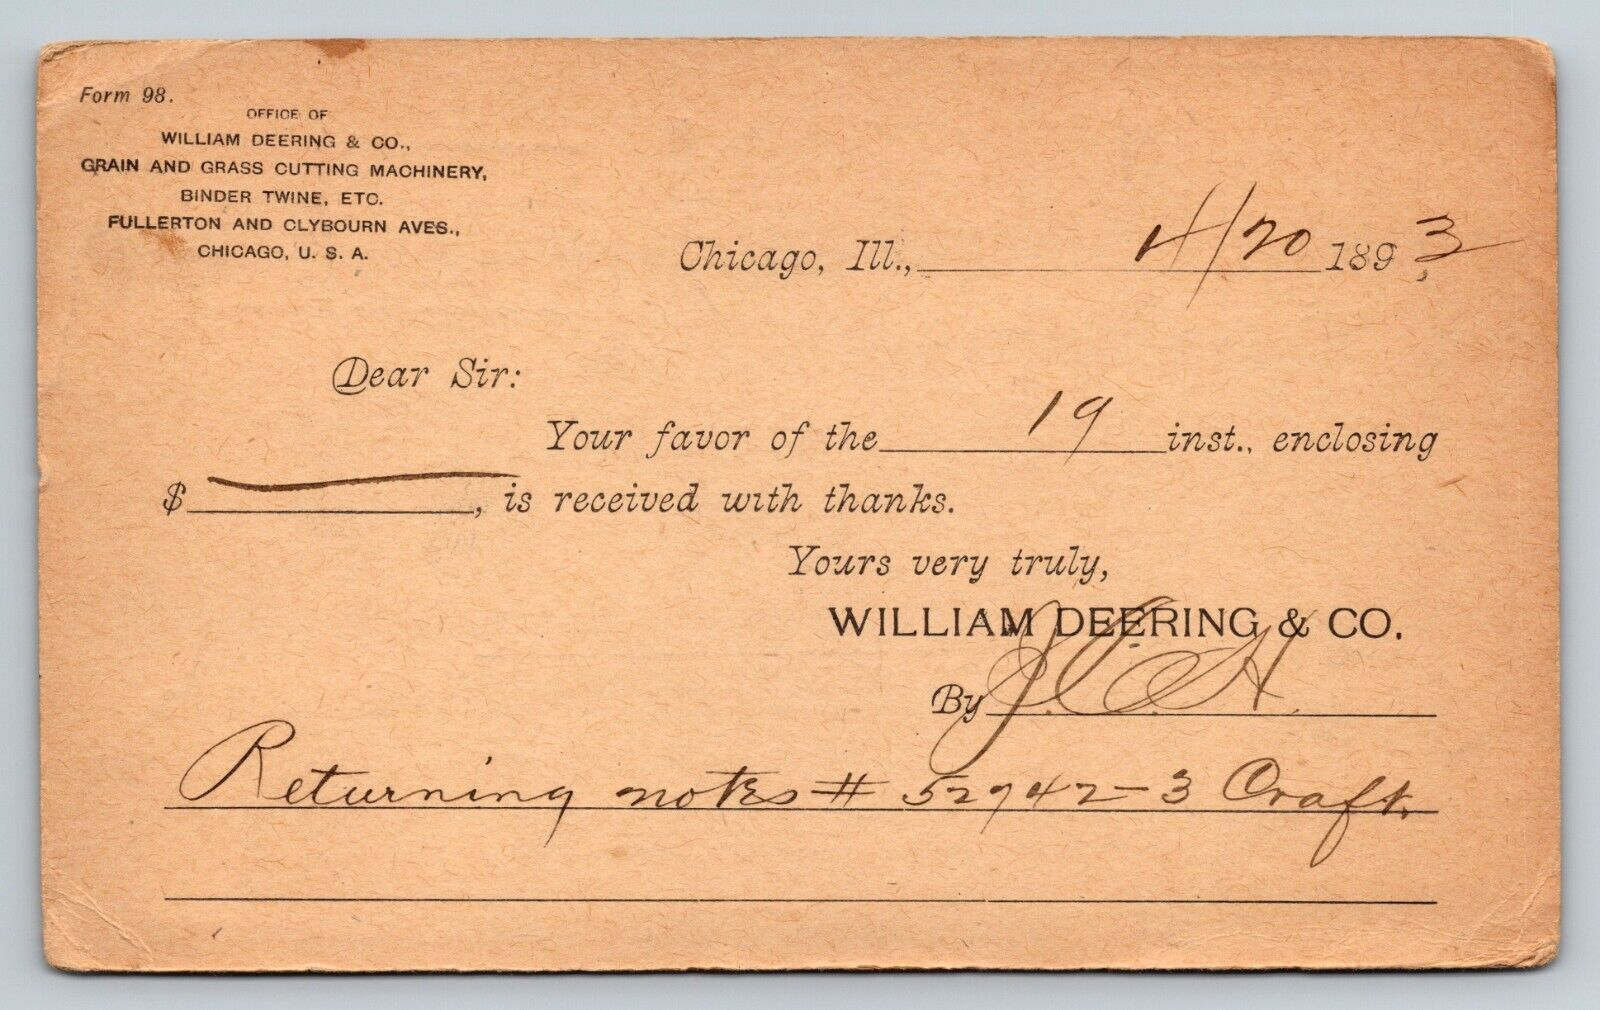 Form 98.
OFFICE OF
WILLIAM DEERING & CO.,
GRAIN AND GRASS CUTTING MACHINERY,
BINDER TWINE, ETC.
FULLERTON AND CLYBOURN AVES.,
CHICAGO, U. S. A.
Chicago, Ill., 4/20 1893
Dear Sir:
Your favor of the 19 inst., enclosing
$ , is received with thanks.
Yours very truly,
WILLIAM DEERING & CO.
By
Returning notes # 52742-3 Craft.